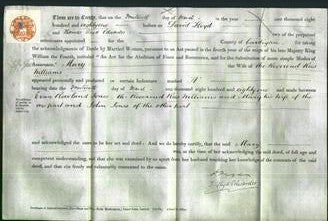 These are to Certify, that on the Twelfth day of March in the year one thousand eight
hundred and eighty one before us David Lloyd
and Thomas Lloyd Edwardes two of the perpetual
commissioners appointed for the County of Cardigan for taking the
acknowledgments of Deeds by Married Women, pursuant to an Act passed in the fourth year of the reign of his late Majesty King
William the Fourth, intituled "An Act for the Abolition of Fines and Recoveries, and for the substitution of more simple Modes of
Assurance," Mary Wife of The Reverend Rees
Williams
appeared personally and produced a certain Indenture marked A
bearing date the Twelfth day of March one thousand eight hundred and eighty one and made between
Evan Rowland Jones the Reverend Rees Williams and Mary his wife of the
one part and John Jones of the other part
and acknowledged the same to be her act and deed: And we do hereby certify, that the said Mary
was, at the time of her acknowledging the said deed, of full age and
competent understanding, and that she was examined by us apart from her husband touching her knowledge of the contents of the said
deed, and that she freely and voluntarily consented to the same.